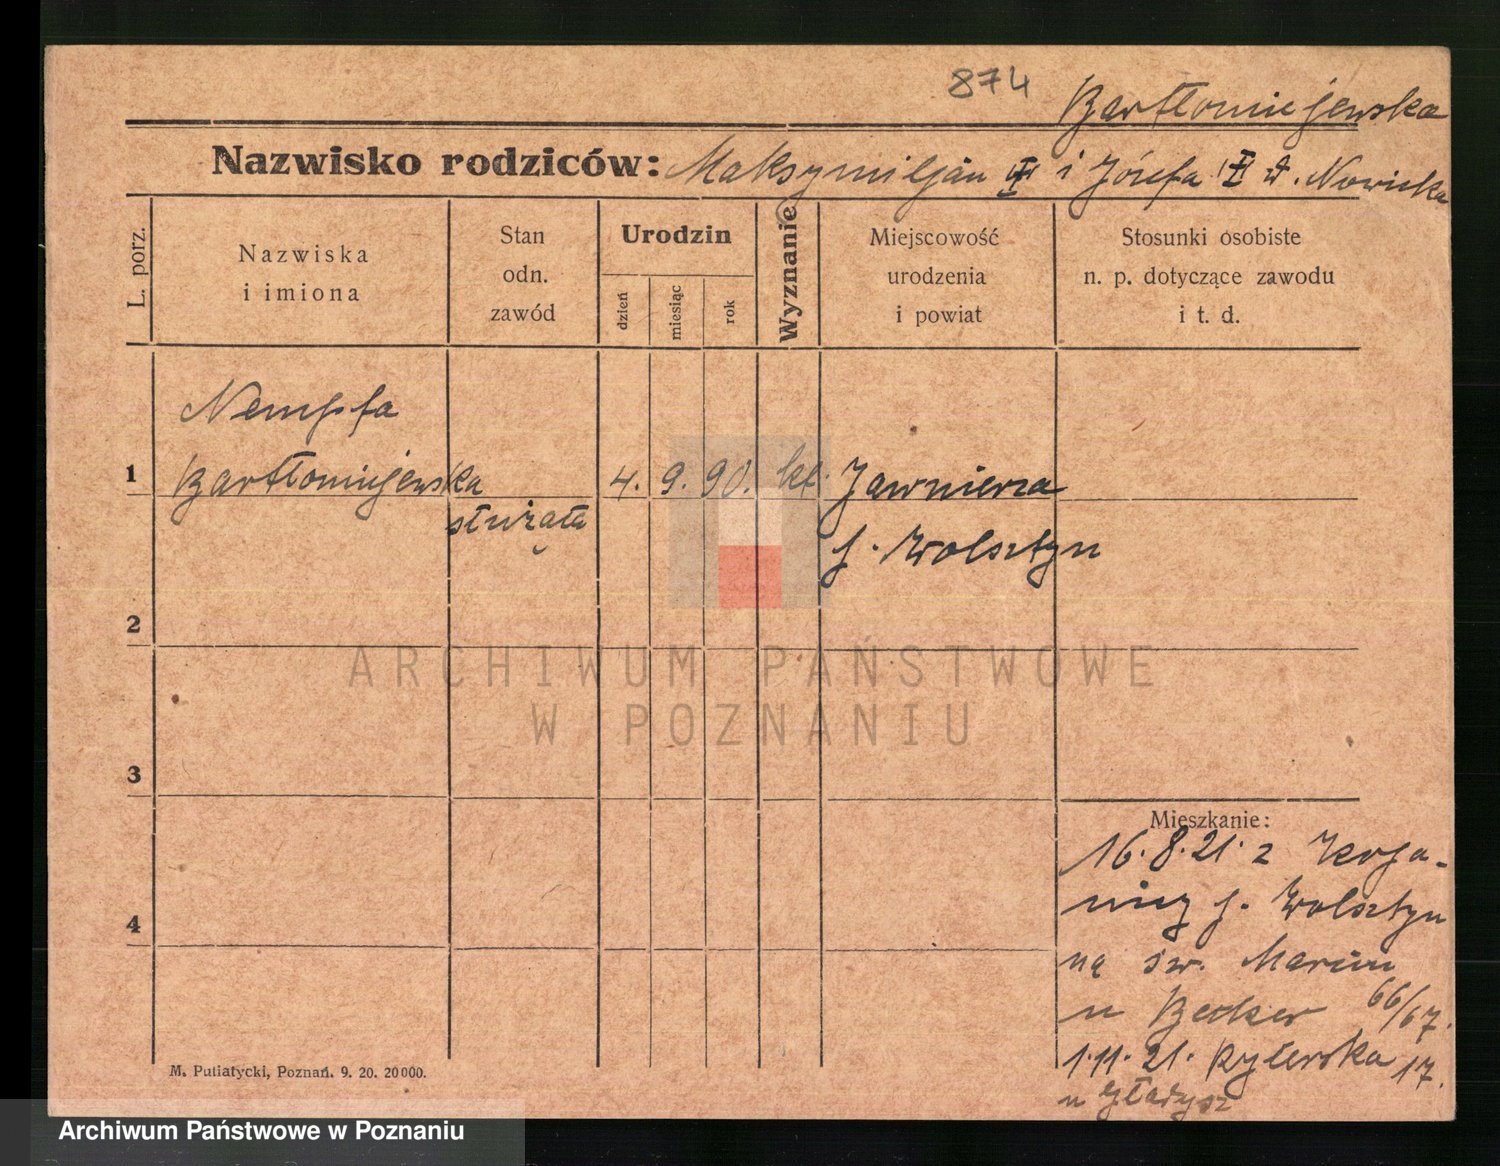 874
Bartłomiejewska
Nazwisko rodziców: Maksymiljan i Józefa Nowicka
L. porz.
Nazwiska
i imiona
Stan
odn.
zawód
Urodzin
dzień
miesiąc
rok
Wyznanie
Miejscowość
urodzenia
i powiat
Stosunki osobiste
n. p. dotyczące zawodu
i t. d.
1
Bartłomiejewska
służąca
4. 9. 90. kt.
p. Wolsztyn
2
3
4
Mieszkanie:
16.8.21. z
p. Wolsztyn
na św. Marcin
u Becker 66/67.
1.11.21. Rycerska 17.
u Gładysz
M. Putiatycki, Poznań. 9. 20. 20000.
ARCHIWUM PAŃSTWOWE
W POZNANIU
Archiwum Państwowe w Poznaniu